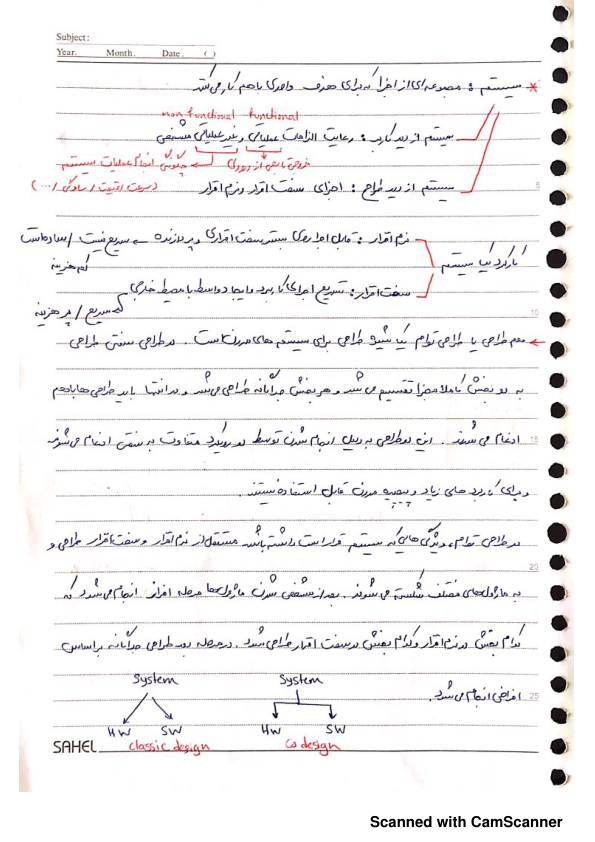 Subject:
Year. Month. Date. ( )
* سیستم : مجموعه‌ای از اجزا که برای هدف واحدی باهم کار می‌کنند
non functional functional
سیستم از دید کاربر : رعایت الزامات عملیاتی و غیر عملیاتی مشخص
خروجی تابعی از ورودی ← چگونگی انجام عملیات سیستم
(سرعت / قیمت / سادگی / ...)
سیستم از دید طراح : اجزای سخت افزار و نرم افزار
5
نرم افزار : قابل اجرا روی بستر سخت افزاری و پردازنده ← سریع نیست / ساده‌است
کم هزینه
کارکرد یک سیستم
سخت افزار : تسریع اجرای کاربرد و ایجاد واسط با محیط خارجی
← سریع / پر هزینه
10
← هم طراحی یا طراحی توام یک شیوه طراحی برای سیستم های مدرن است . در طراحی سنتی طراحی
به دو بخش کاملا مجزا تقسیم می‌شد و هر بخش جداگانه طراحی می‌شد و در انتها باید طراحی ها باهم
ادغام می شدند . این دو طراحی به دلیل انجام شدن توسط دو رویکرد متفاوت به سختی ادغام می‌شوند
15
و برای کاربرد های زیاد و پیچیده مدرن قابل استفاده نیستند .
در طراحی توام ، ویژگی هایی که سیستم قرار است داشته باشد مستقل از نرم افزار و سخت افزار طراحی و
20
به ماژول‌های مختلف شکسته می شوند . بعد از مشخص شدن ماژول‌ها مرحله افراز انجام می‌شود که
کدام بخش در نرم افزار و کدام بخش در سخت افزار طراحی شود . در مرحله بعد طراحی جداگانه براساس
افراض انجام می شود .
25
System System
HW SW HW SW
SAHEL classic design Co design
Scanned with CamScanner